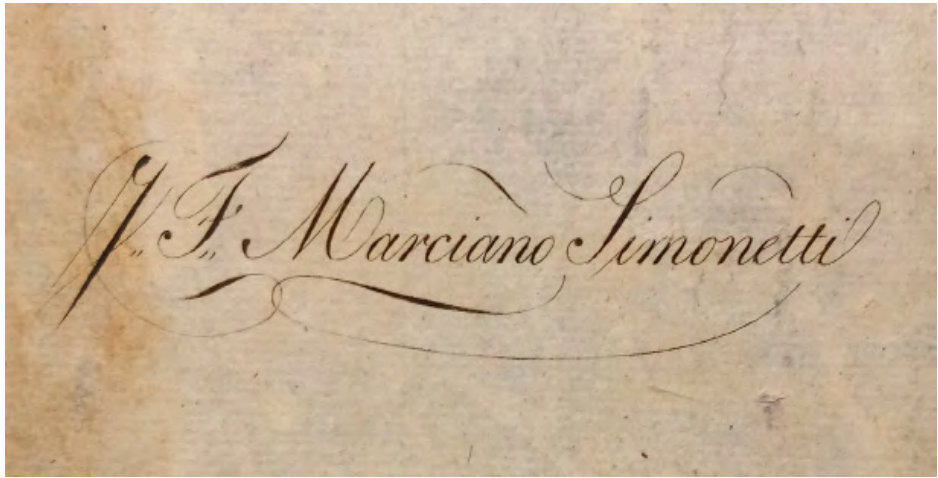 J.. F.. Marciano Simonetti